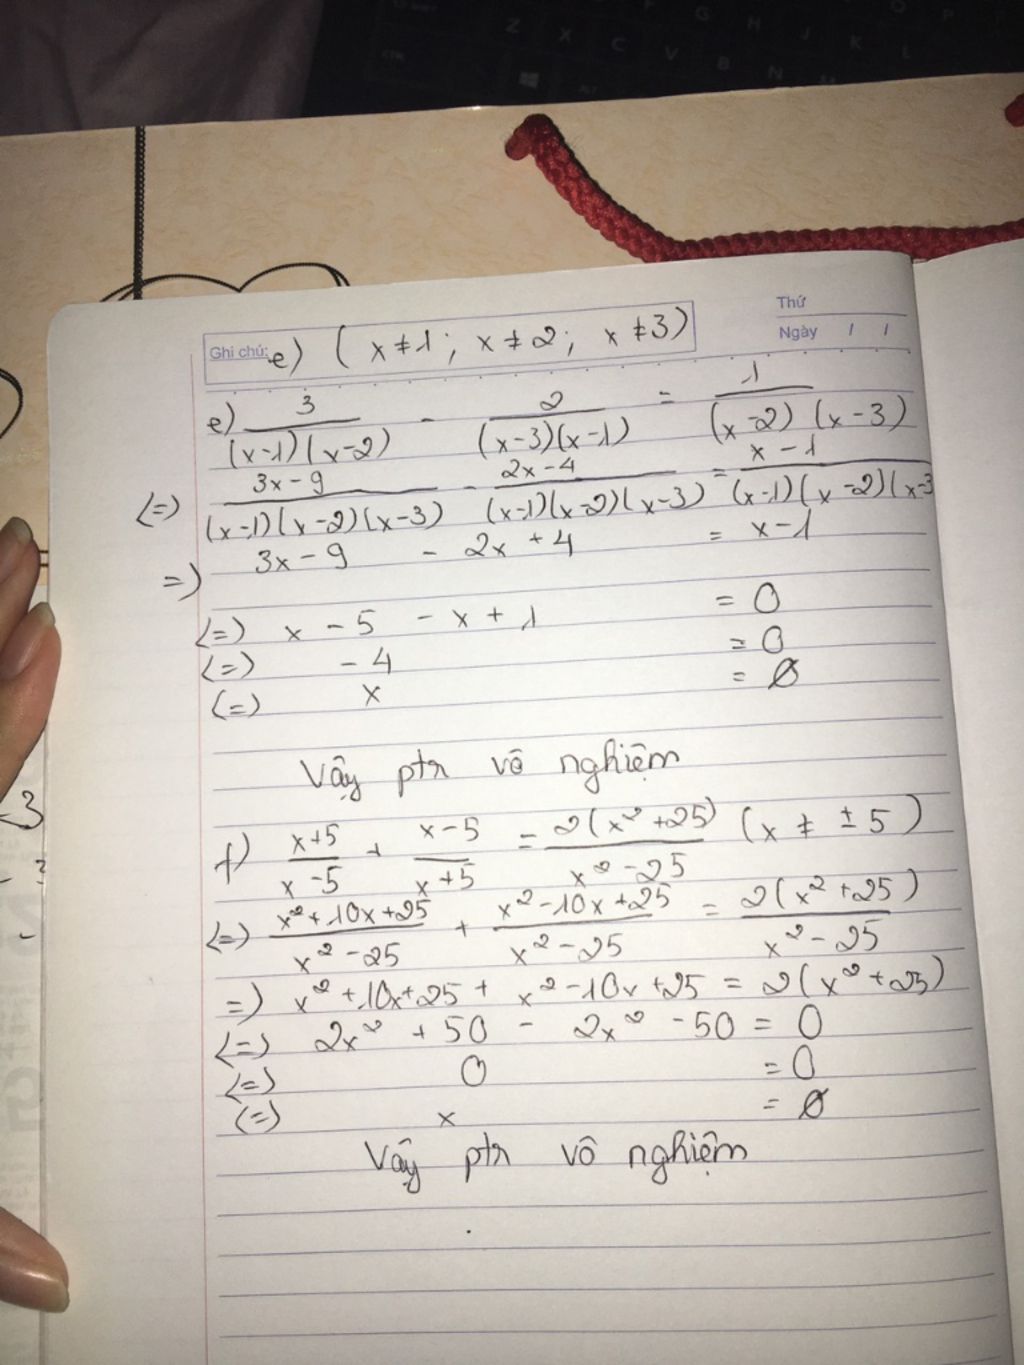 Thứ
Ngày / /
Ghi chú: e) ( x ≠ 1 ; x ≠ 2 ; x ≠ 3 )
e) 3/((x-1)(x-2)) - 2/((x-3)(x-1)) = 1/((x-2)(x-3))
(=) (3x-9)/((x-1)(x-2)(x-3)) - (2x-4)/((x-1)(x-2)(x-3)) = (x-1)/((x-1)(x-2)(x-3
=) 3x-9 - 2x+4 = x-1
(=) x - 5 - x + 1 = 0
(=) -4 = 0
(=) x = Ø
Vậy ptr vô nghiệm
f) (x+5)/(x-5) + (x-5)/(x+5) = 2(x²+25)/(x²-25) (x ≠ ±5)
(=) (x²+10x+25)/(x²-25) + (x²-10x+25)/(x²-25) = 2(x²+25)/(x²-25)
=) x²+10x+25 + x²-10x+25 = 2(x²+25)
(=) 2x² + 50 - 2x² - 50 = 0
(=) 0 = 0
(=) x = Ø
Vậy ptr vô nghiệm